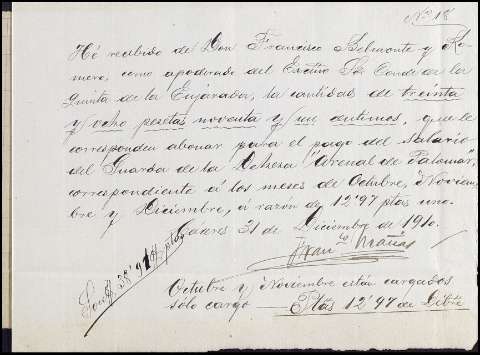 Nº 18
Hé recibido de Don Francisco Belmonte y Ro-
mero, como apoderado del Excmo Sr. Conde de la
Quinta de la Enjarada, la cantidad de treinta
y ocho pesetas noventa y un centimos, que le
corresponden abonar para el pago del salario
del Guarda de la Dehesa "Arenal de Palomar",
correspondiente á los meses de Octubre, Noviem-
bre y Diciembre, á razon de 12'97 ptas uno.
Caceres 31 de Diciembre de 1910.
Franco Mañas
Son 38'91 ptas
Octubre y Noviembre estan cargados
solo cargo Ptas 12'97 de Dibre